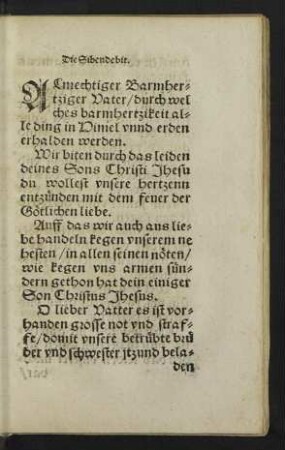 Die Sibendebit.
ALmechtiger Barmher-
tziger Vater/durch wel
ches barmhertzikeit al-
le ding in Himel vnnd erden
erhalden werden.
Wir biten durch das leiden
deines Sons Christi Jhesu
du wollest vnsere hertzenn
entzünden mit dem feuer der
Götlichen liebe.
Auff das wir auch aus lie-
be handeln kegen vnserem ne
hesten/in allen seinen nöten/
wie kegen vns armen sün-
dern gethon hat dein einiger
Son Christus Jhesus.
O lieber Vatter es ist vor-
handen grosse not vnd straf-
fe/domit vnsere betrübte brü
der vnd schwester jtzund bela-
den